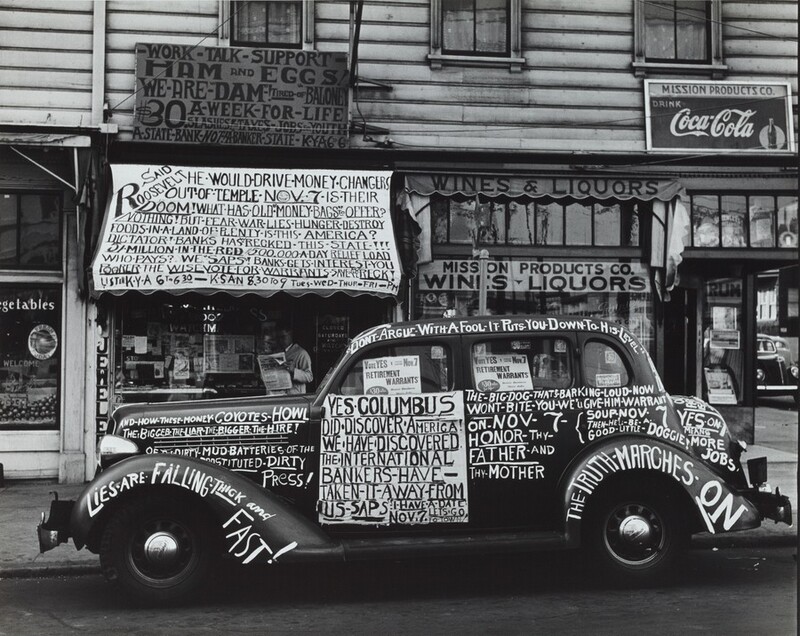 WORK-TALK-SUPPORT
HAM AND EGGS!
WE-ARE-DAM! TIRED-OF BALONEY
$30 A-WEEK-FOR-LIFE
TAXES-JOBS-YOUTH
A-STATE-BANK-NOT A-BANKER-STATE-KYA 6 6
SAID ROOSEVELT HE-WOULD-DRIVE-MONEY-CHANGERS
OUT-OF-TEMPLE-NOV-7-IS-THEIR
DOOM! WHAT-HAS-OLD-MONEY-BAGS TO-OFFER?
NOTHING! BUT-FEAR-WAR-LIES-HUNGER-DESTROY
FOODS-IN-A-LAND-OF-PLENTY-IS-THIS-AMERICA?
DICTATOR! BANKS HAS WRECKED-THIS-STATE!!!
MILLION-INTEREST 900.000-A DAY RELIEF LOAD
WHO-PAYS? WE "SAPS" BANKS-GETS-INTEREST-YOU
THE WISE VOTE FOR WARRANTS
KYA 6 15-6 30-KSAN 8.30 TO 9 TUES-WED-THUR-FRI-PM
MISSION PRODUCTS CO.
DRINK
Coca-Cola
WINES & LIQUORS
MISSION PRODUCTS CO.
WINES & LIQUORS
egetables
WELCOME
JEWELE
RUM
"DON'T-ARGUE WITH A FOOL-IT PUTS-YOU DOWN-TO HIS-LEVEL"
VOTE YES Nov. 7
RETIREMENT
WARRANTS
VOTE YES Nov. 7
RETIREMENT
WARRANTS
AND-HOW-THESE-MONEY COYOTES-HOWL
THE BIGGER-THE-LIAR-THE-BIGGER-THE HIRE!
DIRTY-MUD BATTERIES OF THE
PROSTITUTED-DIRTY
PRESS!
LIES-ARE-FALLING-THICK and
FAST!
YES-COLUMBUS
DID-DISCOVER-AMERICA!
WE-HAVE-DISCOVERED
THE INTERNATIONAL
BANKERS-HAVE-
TAKEN-IT-AWAY-FROM
US-SAPS
I-HAVE-A-DATE
NOV.7.
LETS-GO
TO-TOWN
THE-BIG-DOG-THAT'S-BARKING-LOUD-NOW
WONT-BITE-YOU-WE'LL GIVE HIM-WARRANT
ON-NOV-7-
SOUP NOV. 7
THEN-HE'LL-BE-
GOOD-LITTLE-DOGGIE
HONOR-THY-
FATHER-AND
THY-MOTHER
YES ON
MEANS
MORE
JOBS.
THE-TRUTH-MARCHES-ON